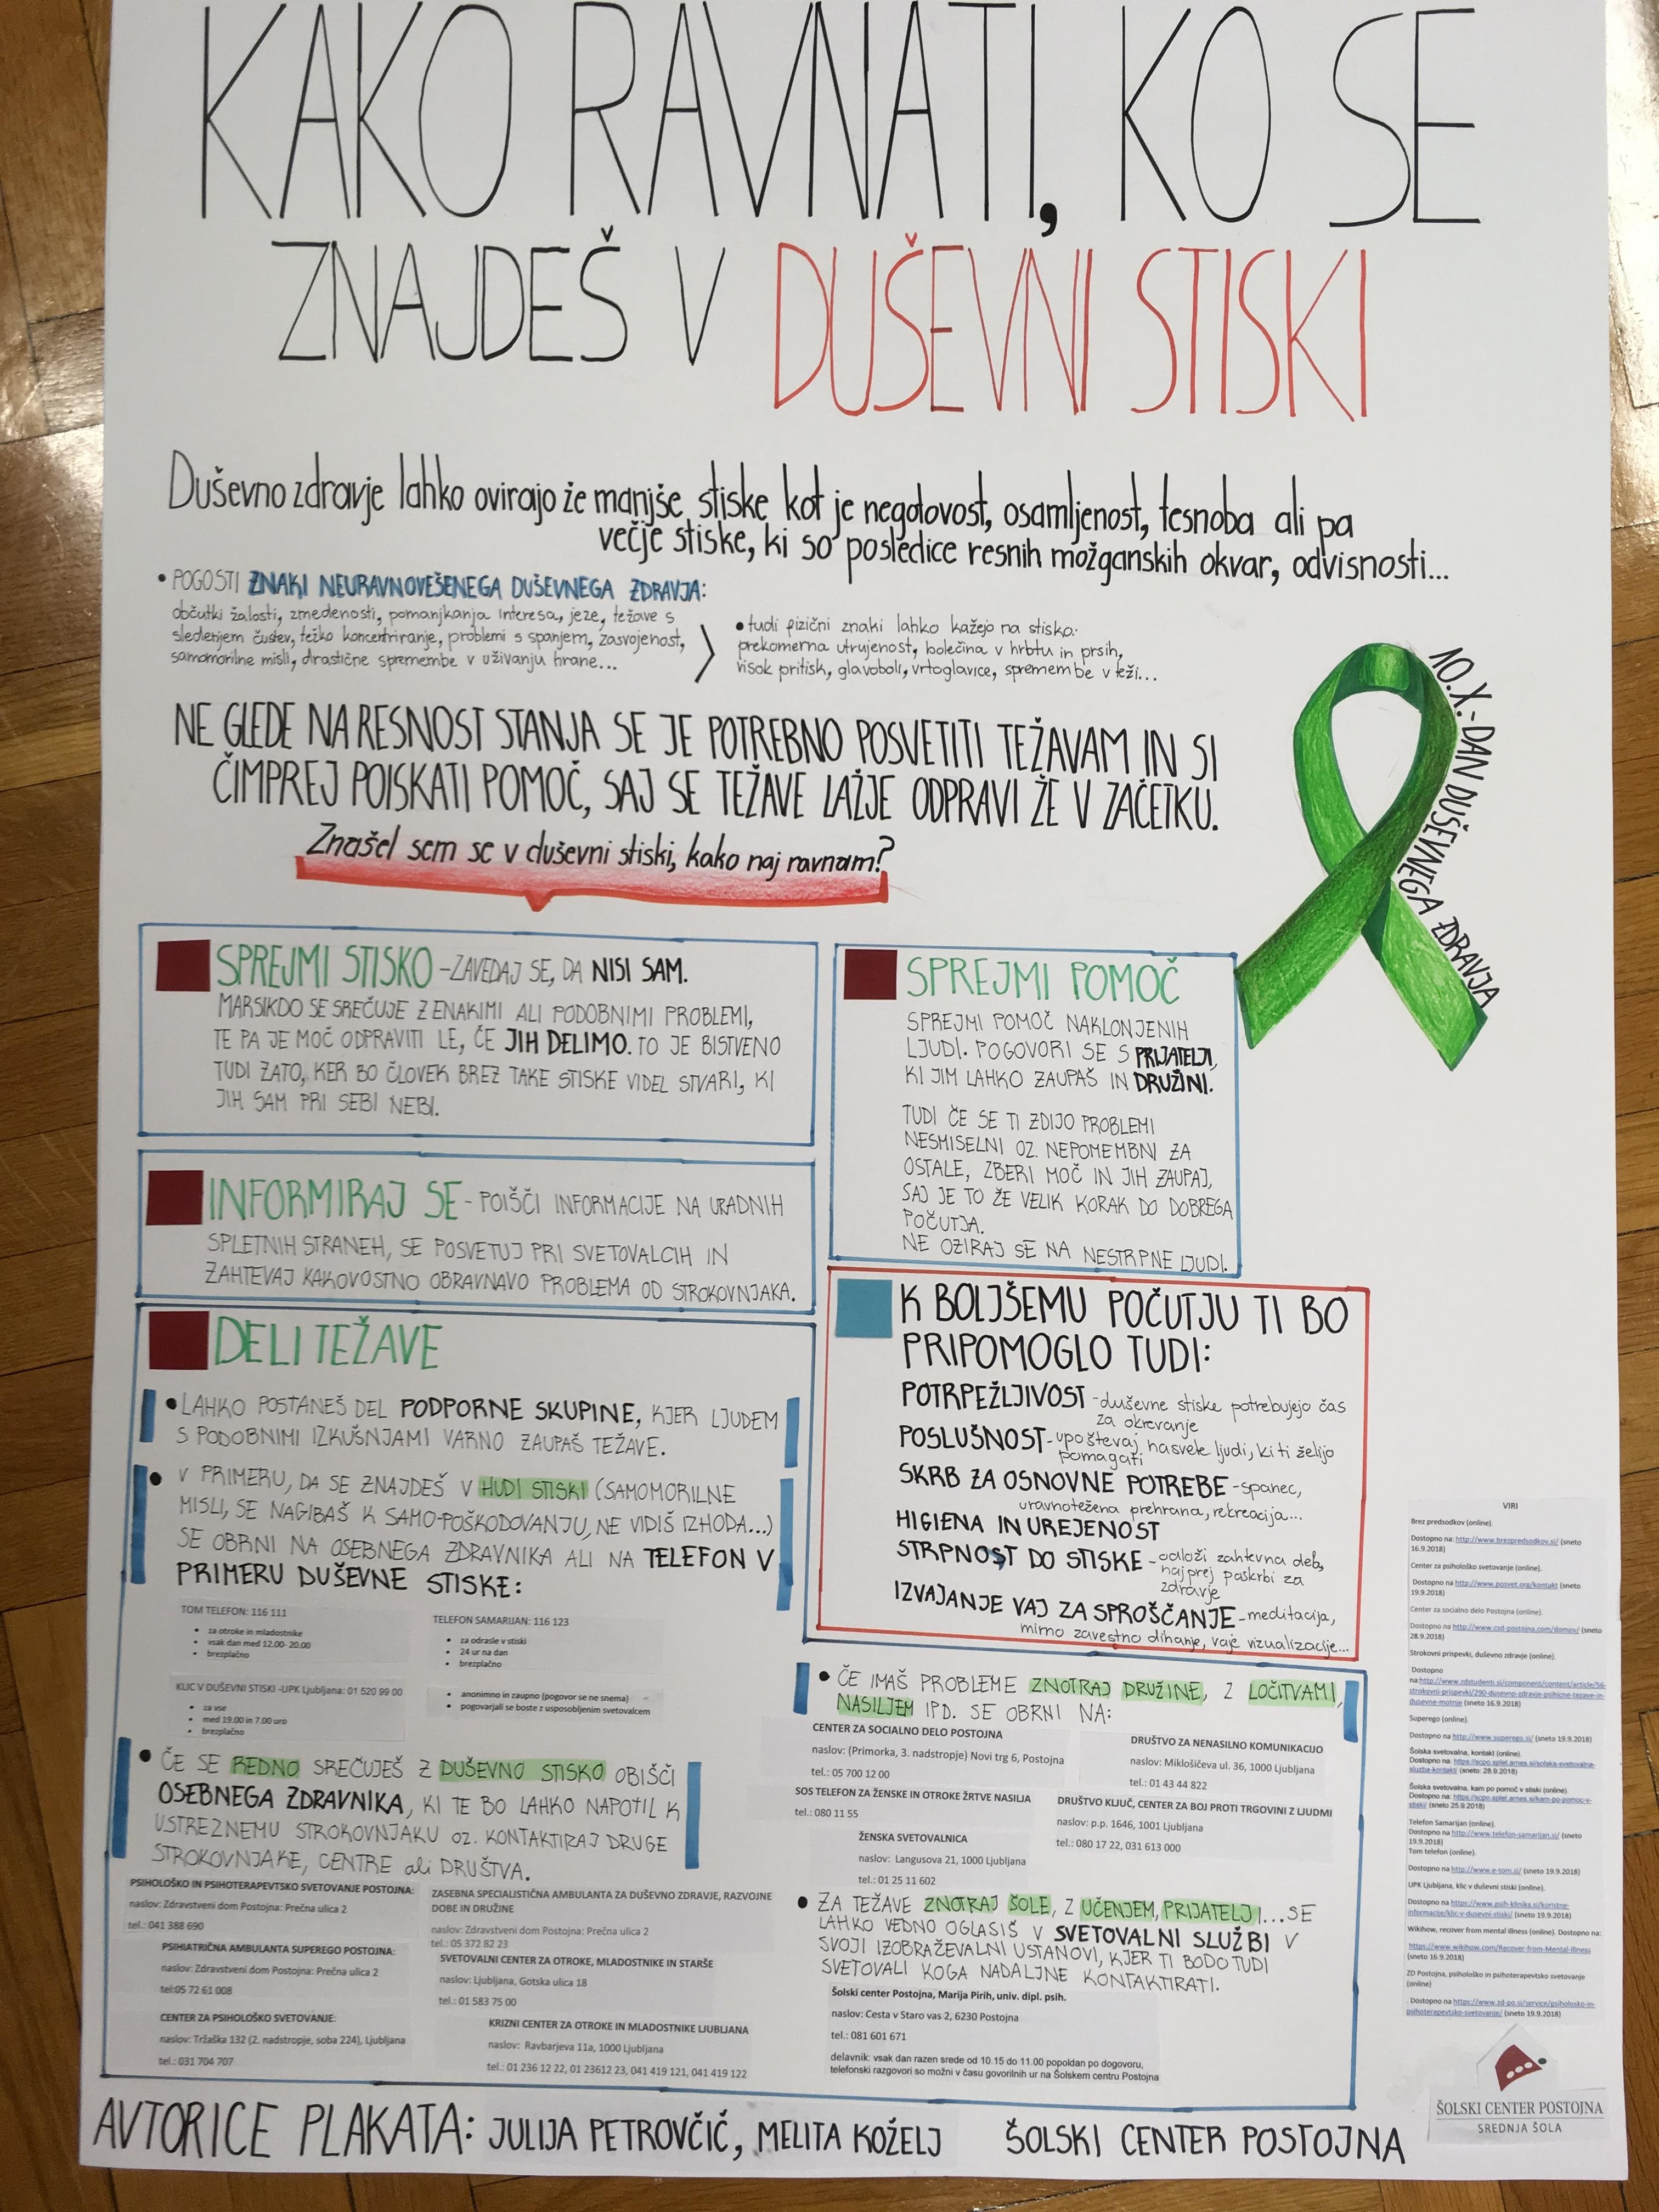 KAKO RAVNATI, KO SE
ZNAJDEŠ V DUŠEVNI STISKI
Duševno zdravje lahko ovirajo že manjše stiske kot je negotovost, osamljenost, tesnoba ali pa
večje stiske, ki so posledice resnih možganskih okvar, odvisnosti...
• POGOSTI ZNAKI NEURAVNOVEŠENEGA DUŠEVNEGA ZDRAVJA:
občutki žalosti, zmedenosti, pomanjkanja interesa, jeze, težave s
sledenjem čustev, težko koncentriranje, problemi s spanjem, zasvojenost,
samomorilne misli, drastične spremembe v uživanju hrane...
• tudi fizični znaki lahko kažejo na stisko:
prekomerna utrujenost, bolečina v hrbtu in prsih,
visok pritisk, glavoboli, vrtoglavice, spremembe v teži...
10.X.-DAN DUŠEVNEGA ZDRAVJA
NE GLEDE NA RESNOST STANJA SE JE POTREBNO POSVETITI TEŽAVAM IN SI
ČIMPREJ POISKATI POMOČ, SAJ SE TEŽAVE LAŽJE ODPRAVI ŽE V ZAČETKU.
Znašel sem se v duševni stiski, kako naj ravnam?
SPREJMI STISKO -ZAVEDAJ SE, DA NISI SAM.
MARSIKDO SE SREČUJE Z ENAKIMI ALI PODOBNIMI PROBLEMI,
TE PA JE MOČ ODPRAVITI LE, ČE JIH DELIMO. TO JE BISTVENO
TUDI ZATO, KER BO ČLOVEK BREZ TAKE STISKE VIDEL STVARI, KI
JIH SAM PRI SEBI NEBI.
INFORMIRAJ SE - POIŠČI INFORMACIJE NA URADNIH
SPLETNIH STRANEH, SE POSVETUJ PRI SVETOVALCIH IN
ZAHTEVAJ KAKOVOSTNO OBRAVNAVO PROBLEMA OD STROKOVNJAKA.
DELI TEŽAVE
• LAHKO POSTANEŠ DEL PODPORNE SKUPINE, KJER LJUDEM
S PODOBNIMI IZKUŠNJAMI VARNO ZAUPAŠ TEŽAVE.
• V PRIMERU, DA SE ZNAJDEŠ V HUDI STISKI (SAMOMORILNE
MISLI, SE NAGIBAŠ K SAMO-POŠKODOVANJU, NE VIDIŠ IZHODA...)
SE OBRNI NA OSEBNEGA ZDRAVNIKA ALI NA TELEFON V
PRIMERU DUŠEVNE STISKE:
TOM TELEFON: 116 111
• za otroke in mladostnike
• vsak dan med 12.00- 20.00
• brezplačno
TELEFON SAMARIJAN: 116 123
• za odrasle v stiski
• 24 ur na dan
• brezplačno
KLIC V DUŠEVNI STISKI -UPK Ljubljana: 01 520 99 00
• za vse
• med 19.00 in 7.00 uro
• brezplačno
• anonimno in zaupno (pogovor se ne snema)
• pogovarjali se boste z usposobljenim svetovalcem
• ČE SE REDNO SREČUJEŠ Z DUŠEVNO STISKO OBIŠČI
OSEBNEGA ZDRAVNIKA, KI TE BO LAHKO NAPOTIL K
USTREZNEMU STROKOVNJAKU OZ. KONTAKTIRAJ DRUGE
STROKOVNJAKE, CENTRE ali DRUŠTVA.
PSIHOLOŠKO IN PSIHOTERAPEVTSKO SVETOVANJE POSTOJNA:
naslov: Zdravstveni dom Postojna: Prečna ulica 2
tel.: 041 388 690
PSIHIATRIČNA AMBULANTA SUPEREGO POSTOJNA:
naslov: Zdravstveni dom Postojna: Prečna ulica 2
tel:05 72 61 008
CENTER ZA PSIHOLOŠKO SVETOVANJE:
naslov: Tržaška 132 (2. nadstropje, soba 224), Ljubljana
tel.: 031 704 707
ZASEBNA SPECIALISTIČNA AMBULANTA ZA DUŠEVNO ZDRAVJE, RAZVOJNE
DOBE IN DRUŽINE
naslov: Zdravstveni dom Postojna: Prečna ulica 2
tel.: 05 372 82 23
SVETOVALNI CENTER ZA OTROKE, MLADOSTNIKE IN STARŠE
naslov: Ljubljana, Gotska ulica 18
tel.: 01 583 75 00
KRIZNI CENTER ZA OTROKE IN MLADOSTNIKE LJUBLJANA
naslov: Ravbarjeva 11a, 1000 Ljubljana
tel.: 01 236 12 22, 01 23612 23, 041 419 121, 041 419 122
SPREJMI POMOČ
SPREJMI POMOČ NAKLONJENIH
LJUDI. POGOVORI SE S PRIJATELJI,
KI JIM LAHKO ZAUPAŠ IN DRUŽINI.
TUDI ČE SE TI ZDIJO PROBLEMI
NESMISELNI OZ. NEPOMEMBNI ZA
OSTALE, ZBERI MOČ IN JIH ZAUPAJ,
SAJ JE TO ŽE VELIK KORAK DO DOBREGA
POČUTJA.
NE OZIRAJ SE NA NESTRPNE LJUDI.
K BOLJŠEMU POČUTJU TI BO
PRIPOMOGLO TUDI:
POTRPEŽLJIVOST -duševne stiske potrebujejo čas
za okrevanje
POSLUŠNOST-upoštevaj nasvete ljudi, ki ti želijo
pomagati
SKRB ZA OSNOVNE POTREBE -spanec,
uravnotežena prehrana, rekreacija...
HIGIENA IN UREJENOST
STRPNOST DO STISKE -odloži zahtevna dela,
najprej poskrbi za
zdravje
IZVAJANJE VAJ ZA SPROŠČANJE-meditacija,
mirno zavestno dihanje, vaje vizualizacije...
• ČE IMAŠ PROBLEME ZNOTRAJ DRUŽINE, Z LOČITVAMI,
NASILJEM IPD. SE OBRNI NA:
CENTER ZA SOCIALNO DELO POSTOJNA
naslov: (Primorka, 3. nadstropje) Novi trg 6, Postojna
tel.: 05 700 12 00
DRUŠTVO ZA NENASILNO KOMUNIKACIJO
naslov: Miklošičeva ul. 36, 1000 Ljubljana
tel.: 01 43 44 822
SOS TELEFON ZA ŽENSKE IN OTROKE ŽRTVE NASILJA
tel.: 080 11 55
DRUŠTVO KLJUČ, CENTER ZA BOJ PROTI TRGOVINI Z LJUDMI
naslov: p.p. 1646, 1001 Ljubljana
tel.: 080 17 22, 031 613 000
ŽENSKA SVETOVALNICA
naslov: Langusova 21, 1000 Ljubljana
tel.: 01 25 11 602
• ZA TEŽAVE ZNOTRAJ ŠOLE, Z UČENJEM, PRIJATELJI...SE
LAHKO VEDNO OGLASIŠ V SVETOVALNI SLUŽBI V
SVOJI IZOBRAŽEVALNI USTANOVI, KJER TI BODO TUDI
SVETOVALI KOGA NADALJNE KONTAKTIRATI.
Šolski center Postojna, Marija Pirih, univ. dipl. psih.
naslov: Cesta v Staro vas 2, 6230 Postojna
tel.: 081 601 671
delavnik: vsak dan razen srede od 10.15 do 11.00 popoldan po dogovoru,
telefonski razgovori so možni v času govorilnih ur na Šolskem centru Postojna
VIRI
Brez predsodkov (online).
Dostopno na: http://www.brezpredsodkov.si/ (sneto
16.9.2018)
Center za psihološko svetovanje (online).
Dostopno na http://www.posvet.org/kontakt (sneto
19.9.2018)
Center za socialno delo Postojna (online).
Dostopno na http://www.csd-postojna.com/domov/ (sneto
28.9.2018)
Strokovni prispevki, duševno zdravje (online).
Dostopno
na:http://www.zdstudenti.si/component/content/article/56-
strokovni-prispevki/290-dusevno-zdravje-psihicne-tezave-in-
dusevne-motnje (sneto 16.9.2018)
Superego (online).
Dostopno na http://www.superego.si/ (sneto 19.9.2018)
Šolska svetovalna, kontakt (online).
Dostopno na: https://scpo.splet.arnes.si/solska-svetovalna-
sluzba-kontakt/ (sneto: 28.9.2018)
Šolska svetovalna, kam po pomoč v stiski (online).
Dostopno na: https://scpo.splet.arnes.si/kam-po-pomoc-v-
stiski/ (sneto 25.9.2018)
Telefon Samarijan (online).
Dostopno na http://www.telefon-samarijan.si/ (sneto
19.9.2018)
Tom telefon (online).
Dostopno na http://www.e-tom.si/ (sneto 19.9.2018)
UPK Ljubljana, klic v duševni stiski (online).
Dostopno na https://www.psih-klinika.si/koristne-
informacije/klic-v-dusevni-stiski/ (sneto 19.9.2018)
Wikihow, recover from mental illness (online). Dostopno na:
https://www.wikihow.com/Recover-from-Mental-Illness
(sneto 16.9.2018)
ZD Postojna, psihološko in psihoterapevtsko svetovanje
(online)
. Dostopno na https://www.zd-po.si/service/psiholosko-in-
psihoterapevtsko-svetovanje/ (sneto 19.9.2018)
ŠOLSKI CENTER POSTOJNA
SREDNJA ŠOLA
AVTORICE PLAKATA: JULIJA PETROVČIČ, MELITA KOŽELJ ŠOLSKI CENTER POSTOJNA